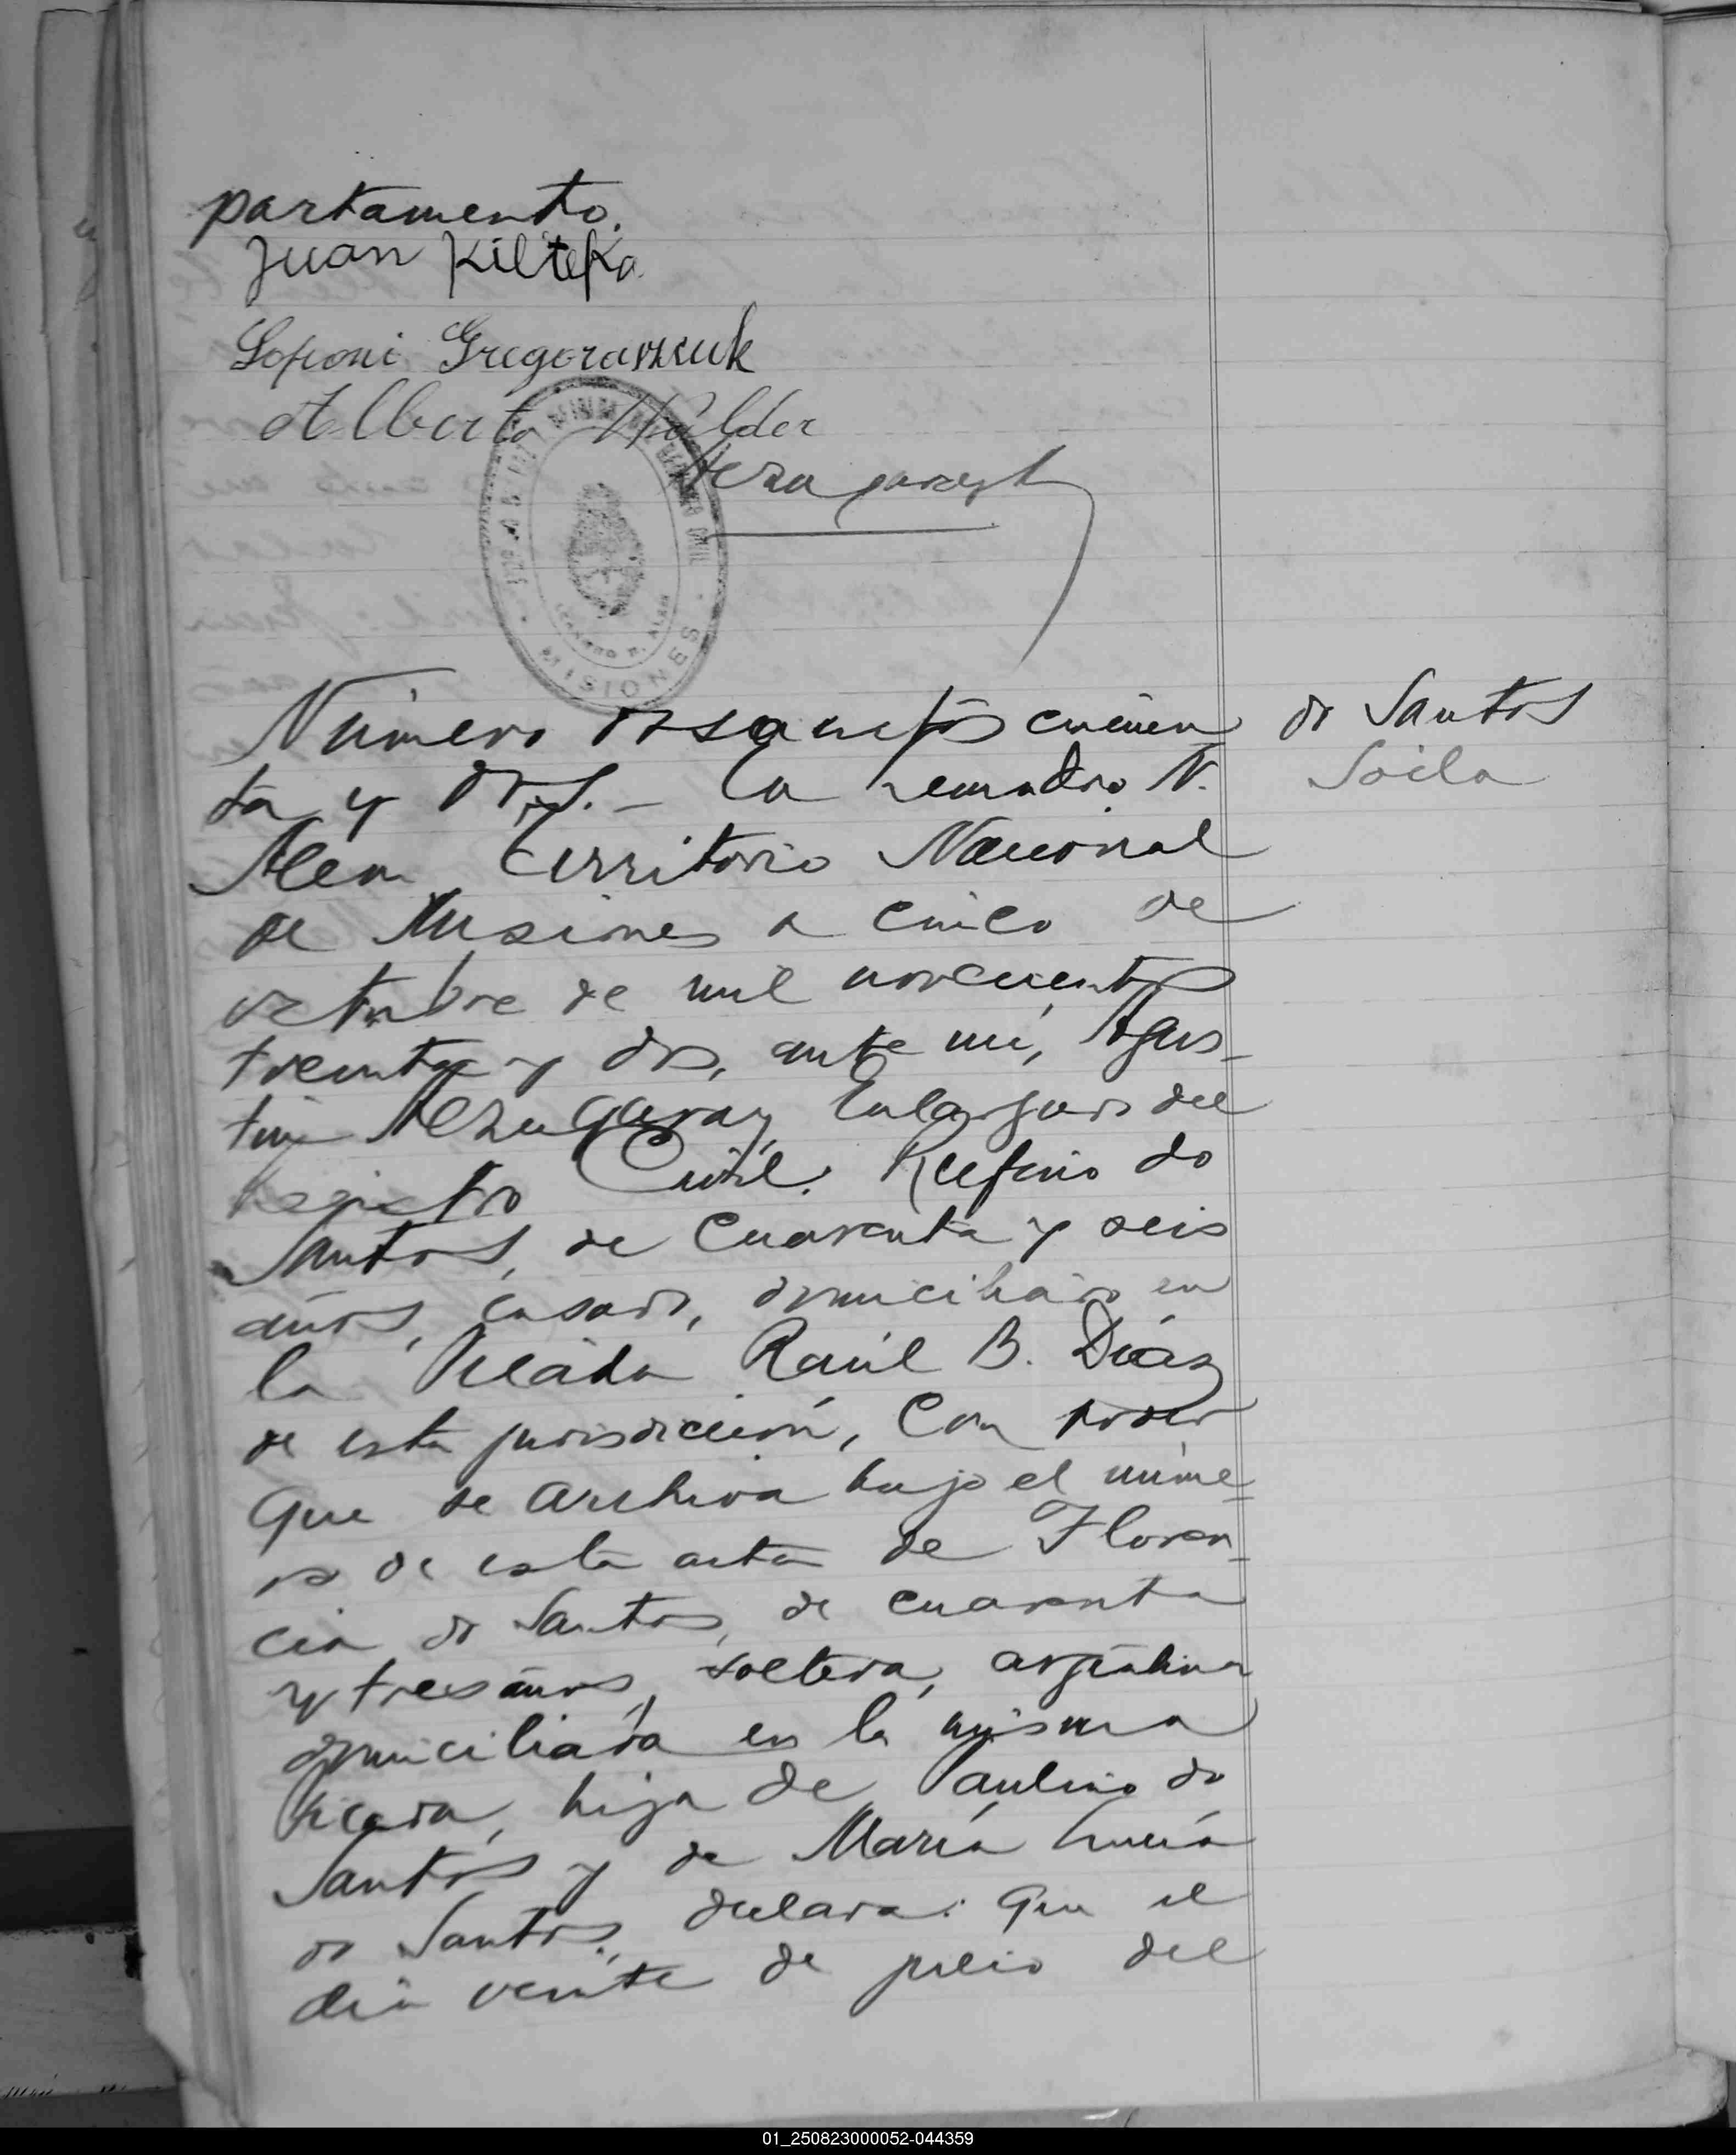 partamento.
Juan Kiltepka
Sofroni Gregoraszczuk
Alberto Halder
MISIONES
Número doscientos cincuen
ta y dos.- En Leandro N.
Alem Territorio Nacional
de Misiones a cinco de
octubre de mil novecientos
treinta y dos, ante mí, Agus-
tin Alzugaray, Encargado del
Registro Civil: Rufino do
Santos, de cuarenta y seis
años, casado, domiciliado en
la Picada Raúl B. Díaz
de esta jurisdicción, con poder
que se archiva bajo el núme-
ro de esta acta de Floren-
cia do Santos, de cuarenta
y tres años, soltera, argentina
domiciliada en la misma
Picada, hija de Paulino do
Santos y de María Lucía
do Santos, declara: Que el
día veinte de julio del
do Santos
Soila
01_250823000052-044359